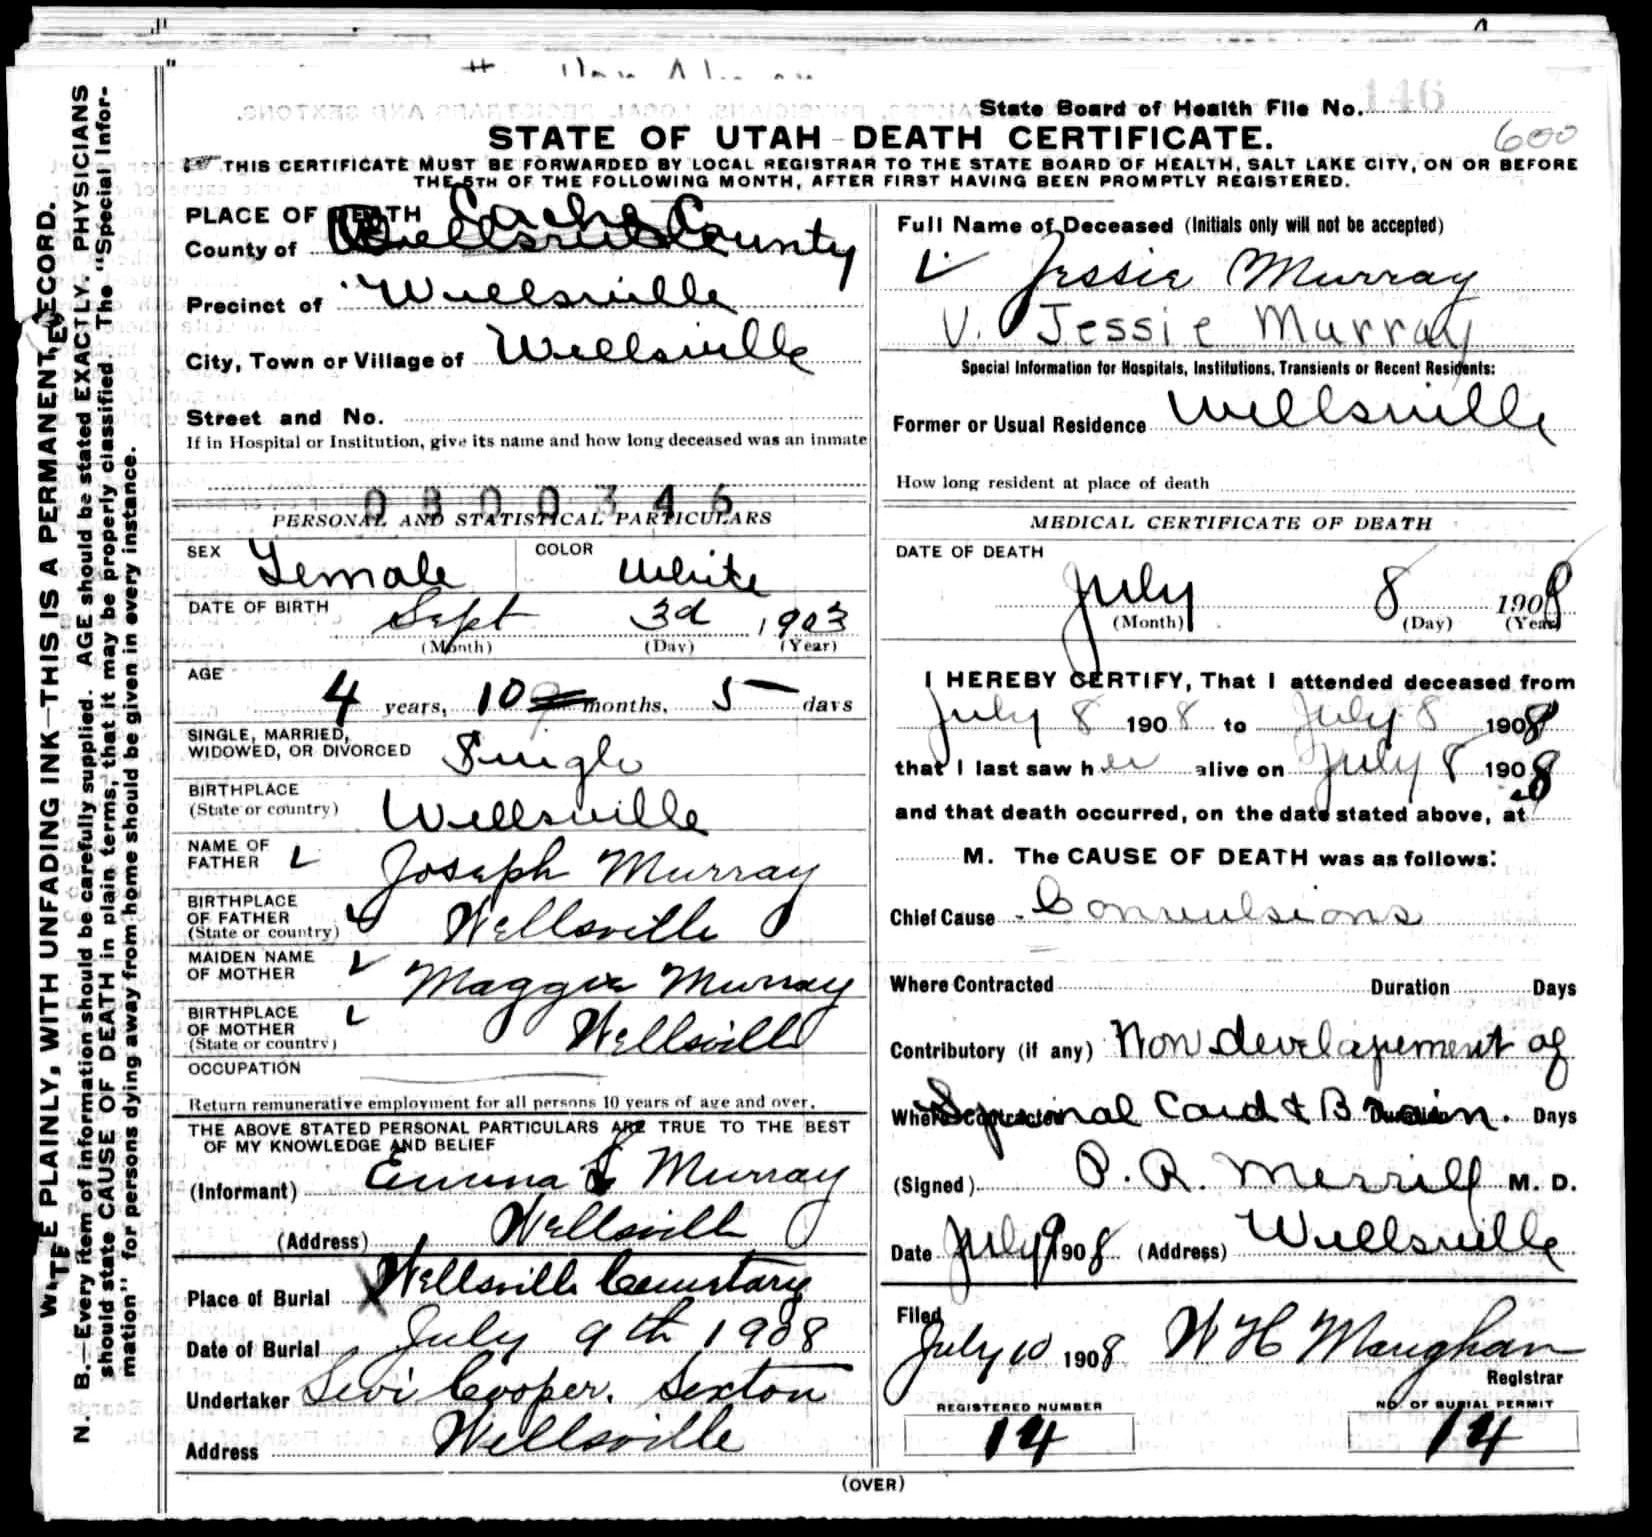 State Board of Health File No. 146
600
STATE OF UTAH - DEATH CERTIFICATE.
THIS CERTIFICATE MUST BE FORWARDED BY LOCAL REGISTRAR TO THE STATE BOARD OF HEALTH, SALT LAKE CITY, ON OR BEFORE
THE 5TH OF THE FOLLOWING MONTH, AFTER FIRST HAVING BEEN PROMPTLY REGISTERED.
PLACE OF DEATH Cache Co
County of Wellsville County
Precinct of Wellsville
City, Town or Village of Wellsville
Street and No.
If in Hospital or Institution, give its name and how long deceased was an inmate
0800346
PERSONAL AND STATISTICAL PARTICULARS
SEX Female COLOR White
DATE OF BIRTH Sept 3d 1903
(Month) (Day) (Year)
AGE
4 years, 10 9 months, 5 days
SINGLE, MARRIED,
WIDOWED, OR DIVORCED Single
BIRTHPLACE
(State or country) Wellsville
NAME OF
FATHER Joseph Murray
BIRTHPLACE
OF FATHER
(State or country) Wellsville
MAIDEN NAME
OF MOTHER Maggie Murray
BIRTHPLACE
OF MOTHER
(State or country) Wellsville
OCCUPATION
Return remunerative employment for all persons 10 years of age and over.
THE ABOVE STATED PERSONAL PARTICULARS ARE TRUE TO THE BEST
OF MY KNOWLEDGE AND BELIEF
(Informant) Emma S Murray
(Address) Wellsville
Place of Burial Wellsville Cemetary
Date of Burial July 9th 1908
Undertaker Levi Cooper. Sexton
Address Wellsville
Full Name of Deceased (Initials only will not be accepted)
Jessie Murray
V. Jessie Murray
Special Information for Hospitals, Institutions, Transients or Recent Residents:
Former or Usual Residence Wellsville
How long resident at place of death
MEDICAL CERTIFICATE OF DEATH
DATE OF DEATH
July 8 1908
(Month) (Day) (Year)
I HEREBY CERTIFY, That I attended deceased from
July 8 1908 to July 8 1908
that I last saw her alive on July 8 1908
and that death occurred, on the date stated above, at
M. The CAUSE OF DEATH was as follows:
Chief Cause Convulsions
Where Contracted Duration Days
Contributory (if any) Non develapement of
Where Contracted Spinal Cord & Brain. Duration Days
(Signed) P. R. Merrill M. D.
Date July 9 1908 (Address) Wellsville
Filed
July 10 1908 W H Maughan
Registrar
REGISTERED NUMBER
14
NO. OF BURIAL PERMIT
14
(OVER)
WRITE PLAINLY, WITH UNFADING INK—THIS IS A PERMANENT RECORD.
N. B.—Every item of information should be carefully supplied. AGE should be stated EXACTLY. PHYSICIANS
should state CAUSE OF DEATH in plain terms, that it may be properly classified. The "Special Infor-
mation" for persons dying away from home should be given in every instance.